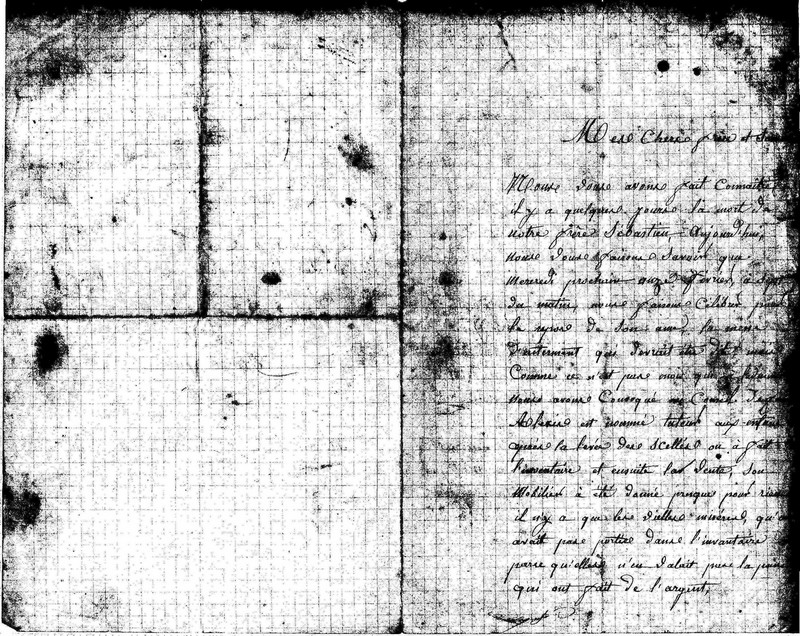 Mes Chers frère et
Nous vous avons fait Connaitre
il y a quelques jours la mort de
notre frère Sébastien, Aujourd'hui,
nous vous faisons Savoir que
Mercredi prochain onze février, à
du matin, nous faisons Célébrer pour
le repos de Son ame, la même
d'enterment qui devrait été dit mais
Comme ce n'est pas
nous avons Convoqué un Conseil de
est nommé tuteur aux
après la levée des Scellés on à fait
l'inventaire et ensuite la Vente, Son
Mobilier à été donné presque pour rien
il n'y a que les vielles misères, qu'on
avait pas portées dans l'invantaire
parse qu'elles n'en valait pas la peine
qui ont fait de l'argent,